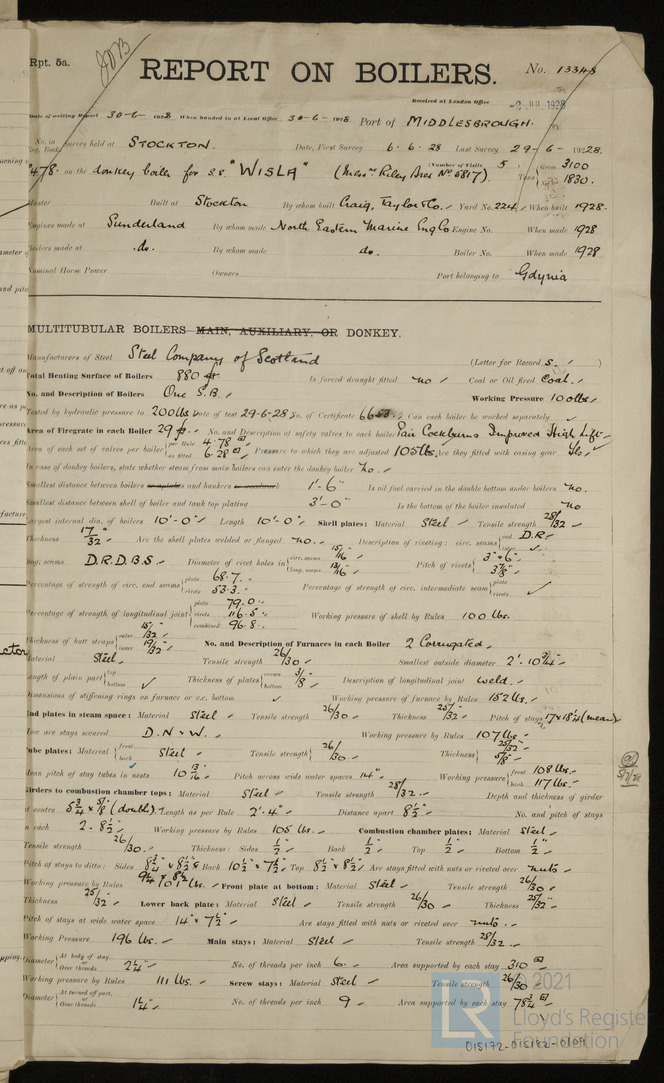 Rpt. 5a.
REPORT ON BOILERS.
No. 13348
Received at London Office
2 JUL 1928
Date of writing Report 30-6-1928 When handed in at Local Office 30-6-1928 Port of MIDDLESBROUGH.
No. in Reg. Book. Survey held at STOCKTON. Date, First Survey 6.6.28 Last Survey 29-6-1928.
478. on the donkey boiler for s.s. "WISLA" (Messrs Riley Bros No 5817). (Number of Visits 5) Tons Gross 3100 Net 1830.
Master Built at Stockton By whom built Craig, Taylor & Co. Yard No. 224 When built 1928.
Engines made at Sunderland By whom made North Eastern Marine Eng Co Engine No. When made 1928
Boilers made at do. By whom made do. Boiler No. When made 1928
Nominal Horse Power Owners Port belonging to Gdynia
MULTITUBULAR BOILERS MAIN, AUXILIARY, OR DONKEY.
Manufacturers of Steel Steel Company of Scotland (Letter for Record S. )
Total Heating Surface of Boilers 880 Is forced draught fitted no Coal or Oil fired Coal.
No. and Description of Boilers One S.B. Working Pressure 100 lbs
Tested by hydraulic pressure to 200 lbs Date of test 29-6-28 No. of Certificate 6653. Can each boiler be worked separately
Area of Firegrate in each Boiler 29 No. and Description of safety valves to each boiler Pair Cockburns Improved High Lift
Area of each set of valves per boiler per Rule 4.78 as fitted 6.28 Pressure to which they are adjusted 105 lbs. Are they fitted with easing gear Yes
In case of donkey boilers, state whether steam from main boilers can enter the donkey boiler No.
Smallest distance between boilers or uptakes and bunkers or woodwork 1'-6" Is oil fuel carried in the double bottom under boilers no.
Smallest distance between shell of boiler and tank top plating 3'-0" Is the bottom of the boiler insulated no
Largest internal dia. of boilers 10'-0" Length 10'-0" Shell plates: Material Steel Tensile strength 28/32
Thickness 17/32" Are the shell plates welded or flanged no. Description of riveting: circ. seams end D.R. inter.
long. seams D.R.D.B.S Diameter of rivet holes in circ. seams 15/16" long. seams 13/16" Pitch of rivets 3".6" 3 7/8"
Percentage of strength of circ. end seams plate 68.7. rivets 53.3. Percentage of strength of circ. intermediate seam plate rivets
Percentage of strength of longitudinal joint plate 79.0 rivets 116.5 combined 96.8 Working pressure of shell by Rules 100 lbs.
Thickness of butt straps outer 15/32" inner 19/32" No. and Description of Furnaces in each Boiler 2 Corrugated.
Material Steel Tensile strength 26/30 Smallest outside diameter 2'.10 3/4"
Length of plain part top bottom Thickness of plates crown bottom 3/8" Description of longitudinal joint weld.
Dimensions of stiffening rings on furnace or c.c. bottom Working pressure of furnace by Rules 152 lbs.
End plates in steam space: Material Steel Tensile strength 26/30 Thickness 25/32" Pitch of stays 17 x 18 1/4 (mean)
How are stays secured D.N.W. Working pressure by Rules 107 lbs
Tube plates: Material front back Steel Tensile strength 26/30. Thickness 25/32" 5/8"
Mean pitch of stay tubes in nests 10 13/16 Pitch across wide water spaces 14" Working pressure front 108 lbs. back 117 lbs.
Girders to combustion chamber tops: Material Steel Tensile strength 28/32. Depth and thickness of girder
at centre 5 3/4" x 5/8" (double). Length as per Rule 2'.4" Distance apart 8 1/2" No. and pitch of stays
in each 2.8 1/2" Working pressure by Rules 105 lbs. Combustion chamber plates: Material Steel.
Tensile strength 26/30. Thickness: Sides 1/2" Back 1/2" Top 1/2" Bottom 1/2"
Pitch of stays to ditto: Sides 8 3/4" x 8 1/2" Back 10 1/2" x 7 1/2" Top 8 1/2" x 8 1/2" Are stays fitted with nuts or riveted over nuts
Working pressure by Rules 101 lbs. Front plate at bottom: Material Steel Tensile strength 26/30
Thickness 25/32" Lower back plate: Material Steel Tensile strength 26/30 Thickness 25/32"
Pitch of stays at wide water space 14" x 7 1/2" Are stays fitted with nuts or riveted over nuts.
Working Pressure 196 lbs. Main stays: Material Steel Tensile strength 28/32.
Diameter At body of stay, or Over threads 2 1/4" No. of threads per inch 6. Area supported by each stay 310
Working pressure by Rules 111 lbs. Screw stays: Material Steel Tensile strength 26/30
Diameter At turned off part, or Over threads 1 1/4" No. of threads per inch 9 Area supported by each stay 78 3/4
© 2021
LR
Lloyd's Register
Foundation
015172-015182-0109